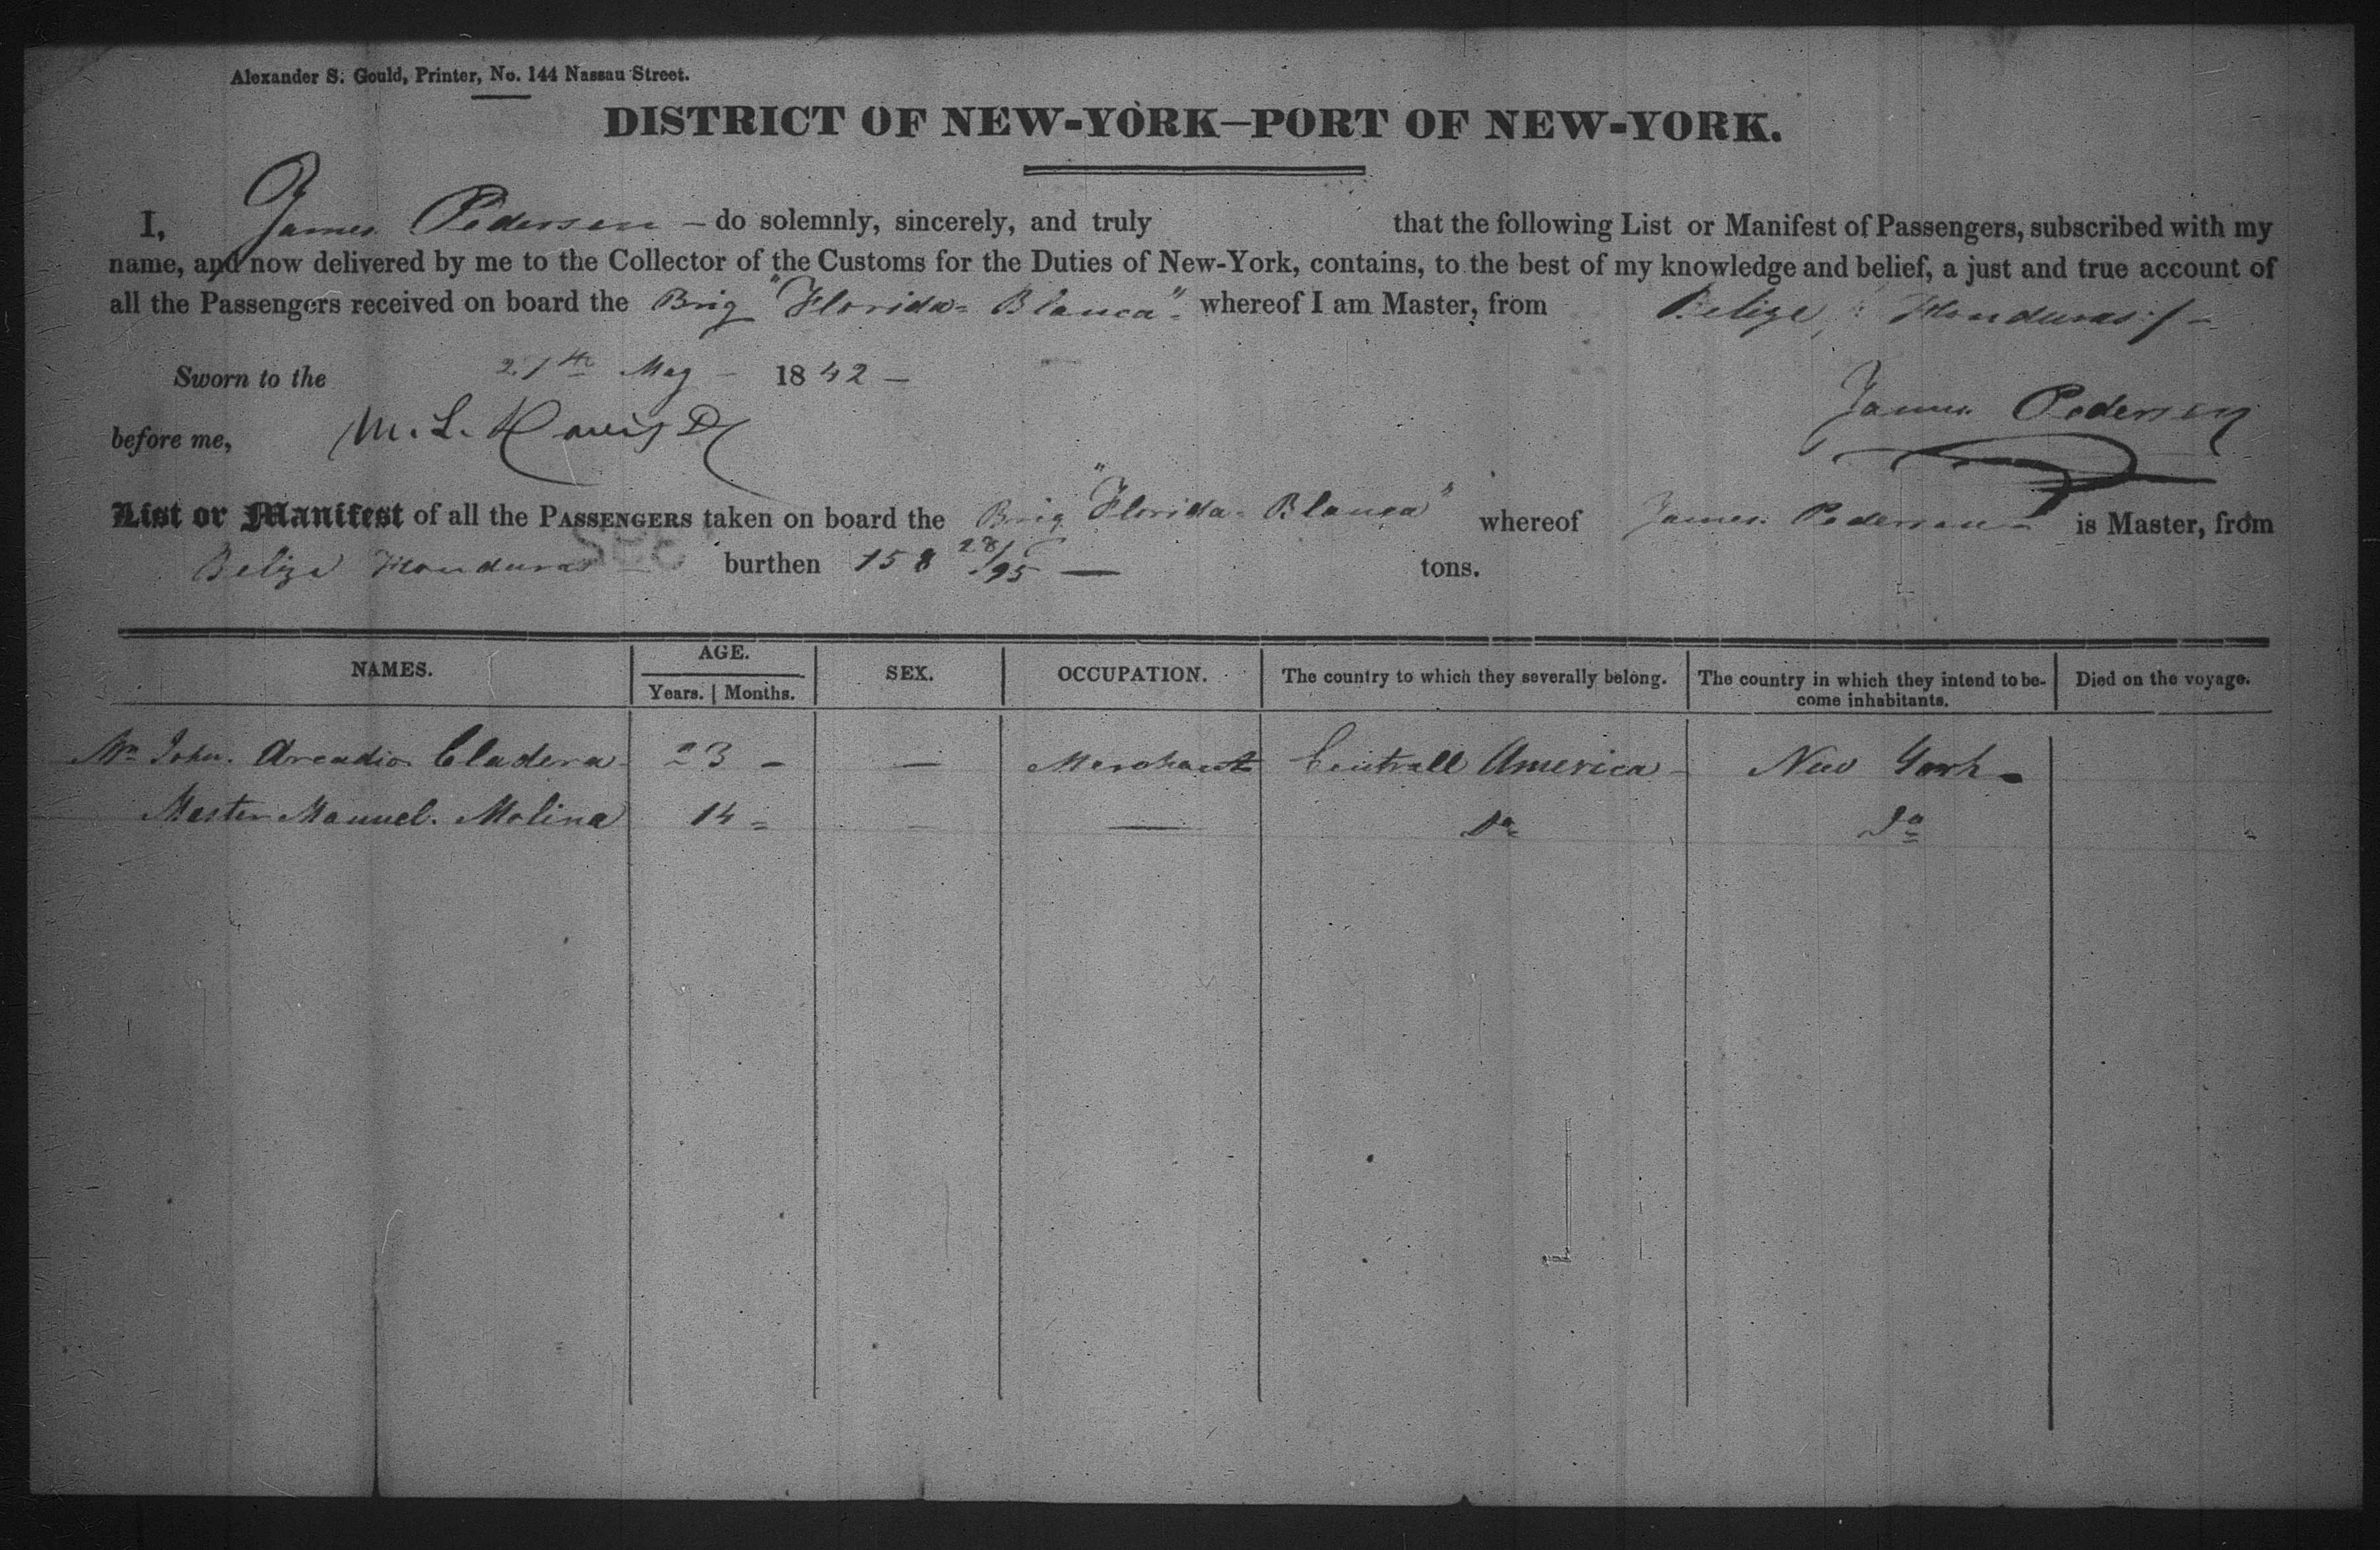 Alexander S. Gould, Printer, No. 144 Nassau Street.
DISTRICT OF NEW-YORK—PORT OF NEW-YORK.
I, James Pedersen – do solemnly, sincerely, and truly that the following List or Manifest of Passengers, subscribed with my
name, and now delivered by me to the Collector of the Customs for the Duties of New-York, contains, to the best of my knowledge and belief, a just and true account of
all the Passengers received on board the Brig "Florida=Blanca" whereof I am Master, from Belize, Honduras
Sworn to the May – 1842 –
James Pedersen
before me, M. L. Davis
List or Manifest of all the PASSENGERS taken on board the Brig "Florida=Blanca" whereof James Pedersen is Master, from
Belize Honduras burthen 158 28/95 — tons.
NAMES. AGE. SEX. OCCUPATION. The country to which they severally belong. The country in which they intend to become inhabitants. Died on the voyage.
Years. Months.
Mr John. Arcadio Cladera 23 – – Merchant Centrall America – New York –
Master Manuel. Molina 14 = – — Do Do